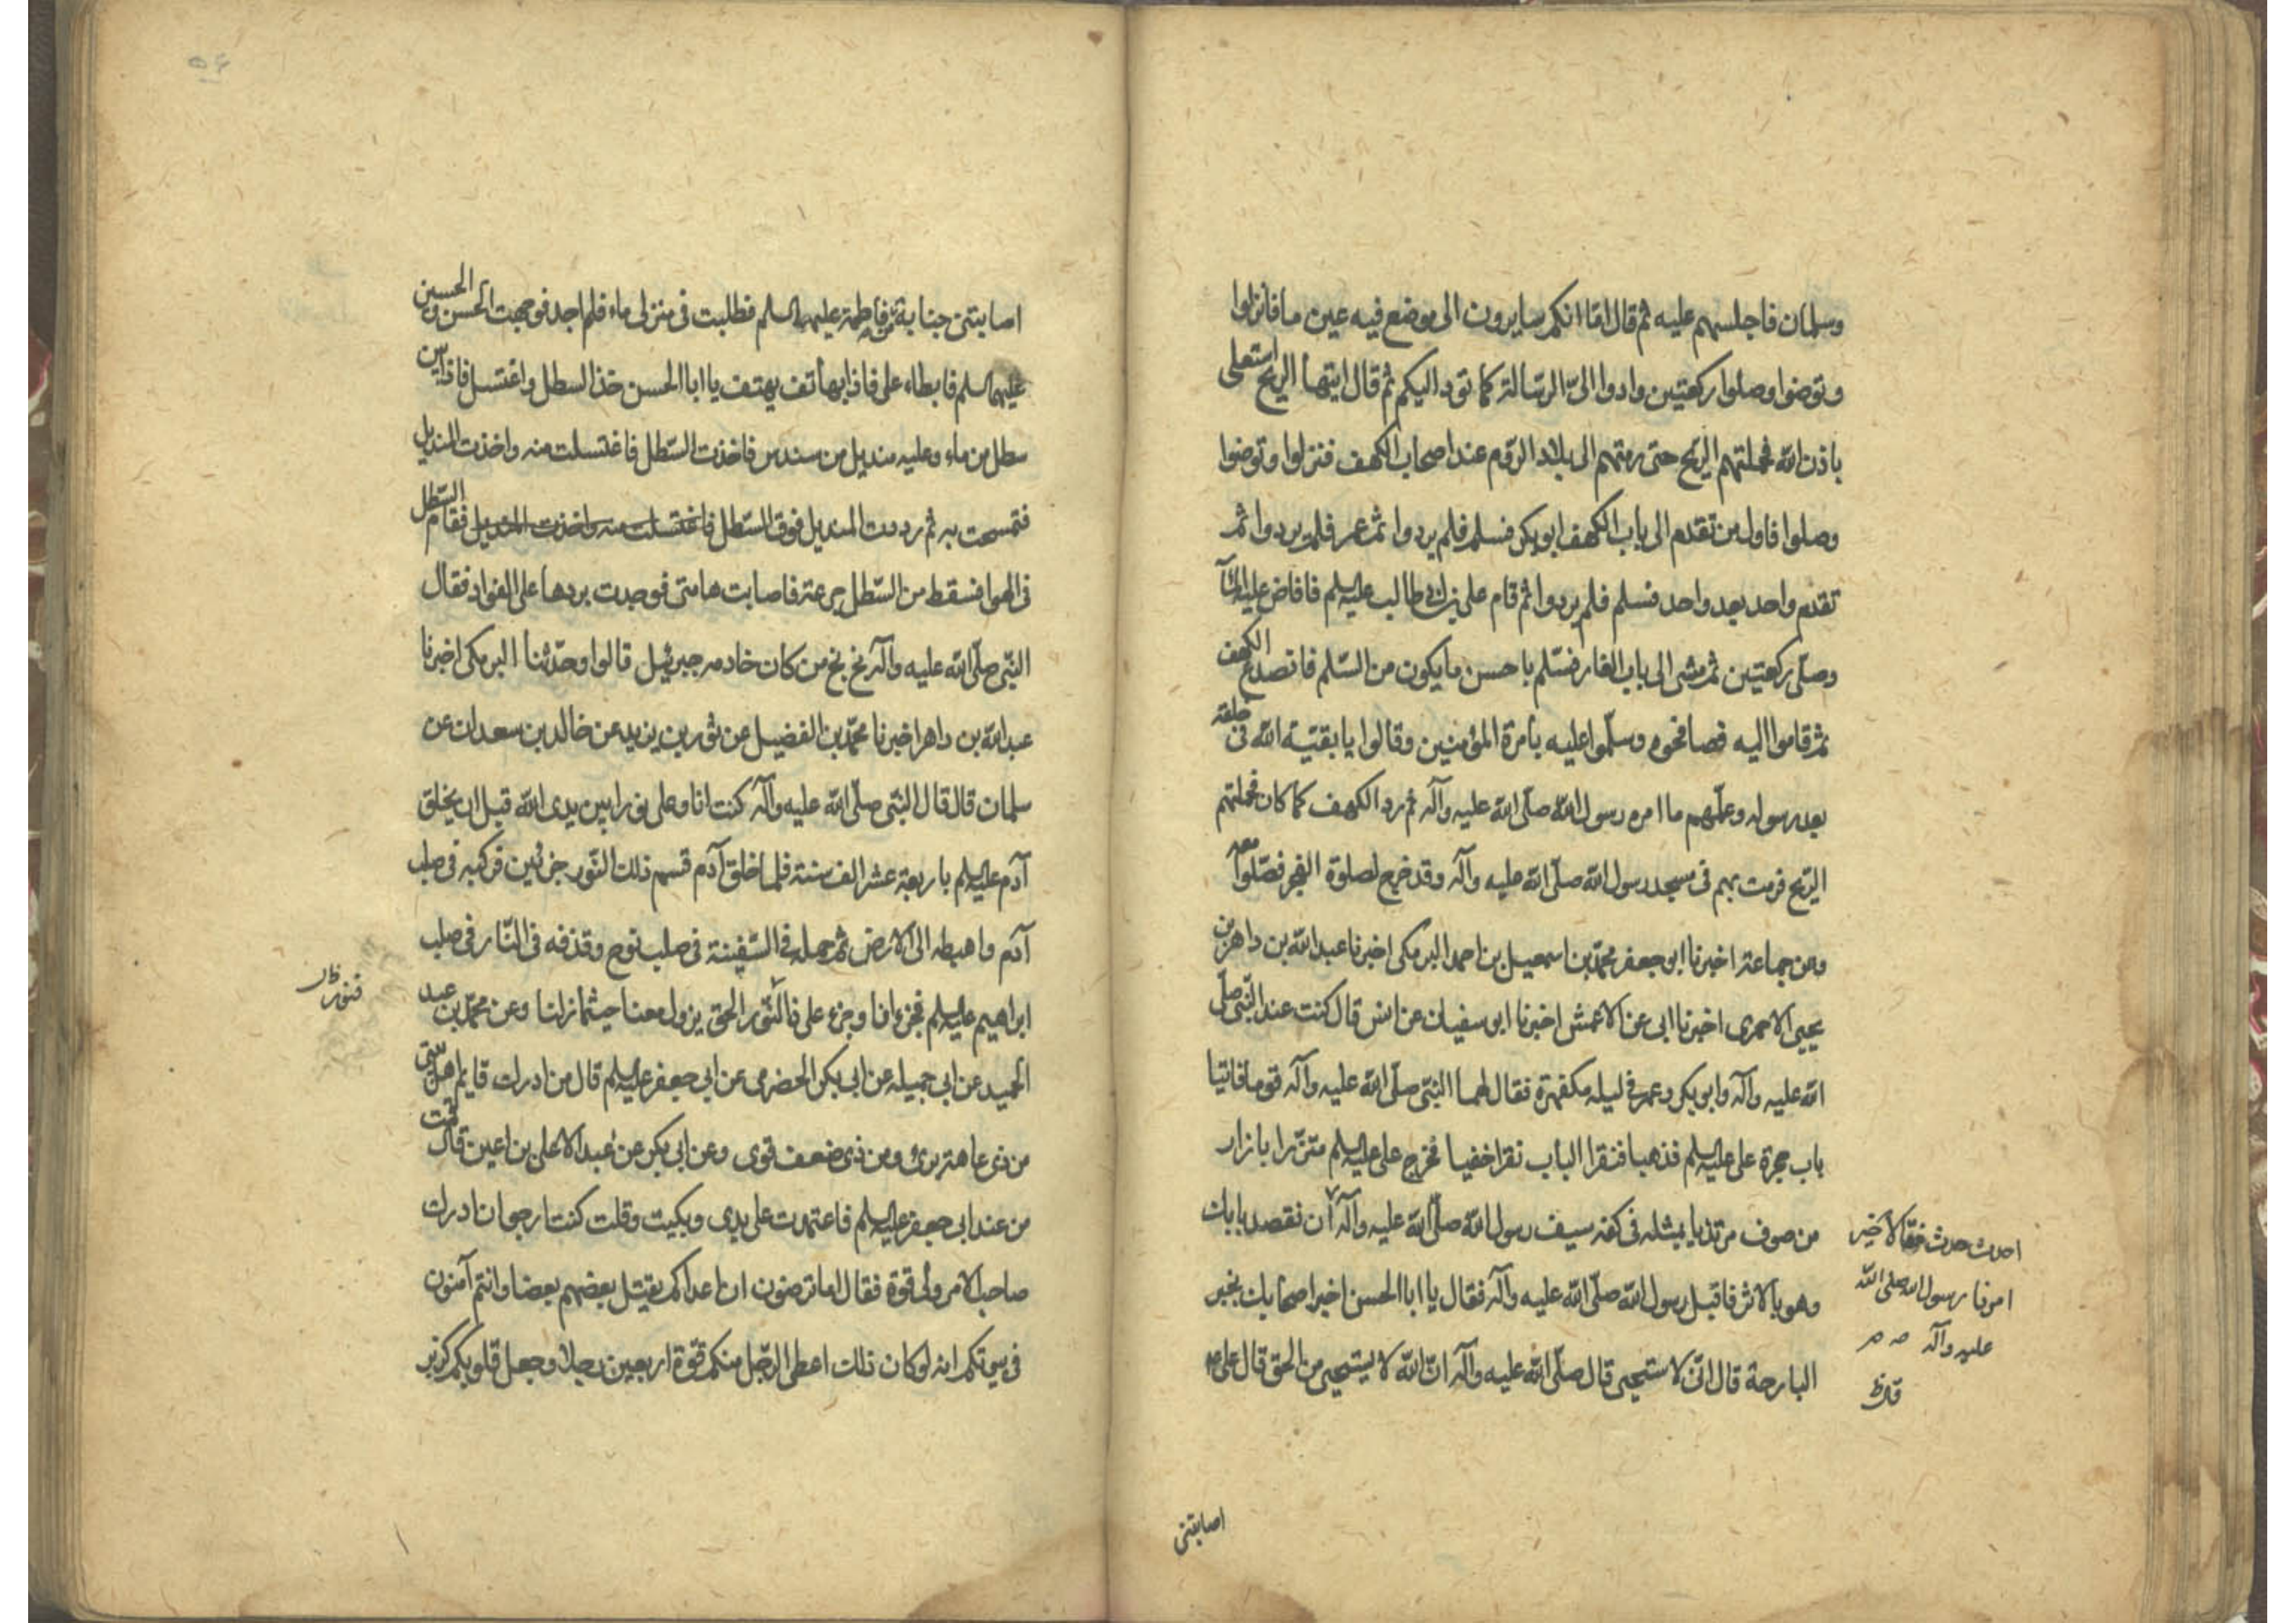 وسلمان فاجلسهم عليه ثم قال اما انكم سايرون الى موضع فيه عين ما فانزلوا
وتوضوا وصلوا ركعتين وادوا الىّ الرسالة كما تؤد اليكم ثم قال ايتها الريح استعلى
باذن الله فحملتهم الريح حتى رمتهم الى بلاد الروم عند اصحاب الكهف فنزلوا وتوضوا
وصلوا فاول من تقدم الى باب الكهف ابو بكر فسلم فلم يردوا ثم عمر فلم يردوا ثم
تقدم واحد بعد واحد فسلم فلم يردوا ثم قام على بن ابى طالب عليه السلم فافاض عليه الماء
وصلى ركعتين ثم مشى الى باب الغار فسلم باحسن ما يكون من السلم فانصدع الكهف
ثم قاموا اليه فصافحوه وسلموا عليه بامرة المؤمنين وقالوا يا بقية الله فى خلقه
بعد رسوله وعلمهم ما امره رسول الله صلى الله عليه وآله ثم رد الكهف كما كان فحملتهم
الريح فرمت بهم فى مسجد رسول الله صلى الله عليه وآله وقد خرج لصلوة الفجر فصلوا معه
وعن جماعة اخبرنا ابو جعفر محمد بن اسمعيل بن احمد البرمكى اخبرنا عبد الله بن داهر بن
يحيى الاحمرى اخبرنا ابى عن الاعمش اخبرنا ابو سفيان عن انس قال كنت عند النبى صلى
الله عليه وآله وابو بكر وعمر فى ليله مكفهرة فقال لهما النبى صلى الله عليه وآله قوما فاتيا
باب حجرة على عليه السلم فذهبا فنقرا الباب نقرا خفيا فخرج على عليه السلم متزرا بازار
من صوف مرتديا بمثله فى كفه سيف رسول الله صلى الله عليه وآله ان نقصد بابك
وهو بالاثر فاقبل رسول الله صلى الله عليه وآله فقال يا ابا الحسن اخبر اصحابك بخبر
البارحة قال انى لاستحيى قال صلى الله عليه وآله ان الله لا يستحيى من الحق قال على
احدث حدث فقالا خير
امرنا رسول الله صلى الله
عليه وآله
اصابتنى
اصابتنى جنابة من فاطمة عليها السلم فطلبت فى منزلى ماء فلم اجد فوجهت الحسن والحسين
عليهما السلم فابطاء على فاذا بهاتف يهتف يا ابا الحسن خذ السطل واغتسل فاذا بين
سطل من ماء وعليه منديل من سندس فاخذت السطل فاغتسلت منه واخذت المنديل
فتمسحت به ثم رددت المنديل فوق السطل فاغتسلت منه واخذت المنديل فقام السطل
فى الهوا فسقط من السطل جرعة فاصابت هامتى فوجدت بردها على الفواد فقال
النبى صلى الله عليه وآله بخ بخ من كان خادمه جبرئيل قالوا وحدثنا البرمكى اخبرنا
عبد الله بن داهر اخبرنا محمد بن الفضيل عن ثور بن يزيد عن خالد بن سعدان عن
سلمان قال قال النبى صلى الله عليه وآله كنت انا وعلى نورا بين يدى الله قبل ان يخلق
آدم عليه السلم باربعة عشر الف سنة فلما خلق آدم قسم ذلك النور جزئين فركبه فى صلب
آدم واهبطه الى الارض ثم حمله فى السفينة فى صلب نوح وقذفه فى النار فى صلب
ابراهيم عليه السلم فجزء انا وجزء على فالنور الحق يزول معنا حيثما زلنا وعن محمد بن عبد
الحميد عن ابى جميله عن ابى بكر الحضرمى عن ابى جعفر عليه السلم قال من ادرك قايم اهل بيتى
من ذى عاهة برئ ومن ذى ضعف قوى وعن ابى بكر عن عبد الاعلى بن اعين قال قمت
من عند ابى جعفر عليه السلم فاعتمدت على يدى وبكيت وقلت كنت ارجو ان ادرك
صاحب الامر ولى قوة فقال اما ترضون ان اعداكم يقتل بعضهم بعضا وانتم آمنون
فى بيوتكم انه لو كان ذلك اعطى الرجل منكم قوة اربعين رجلا وجعل قلوبكم كزبر